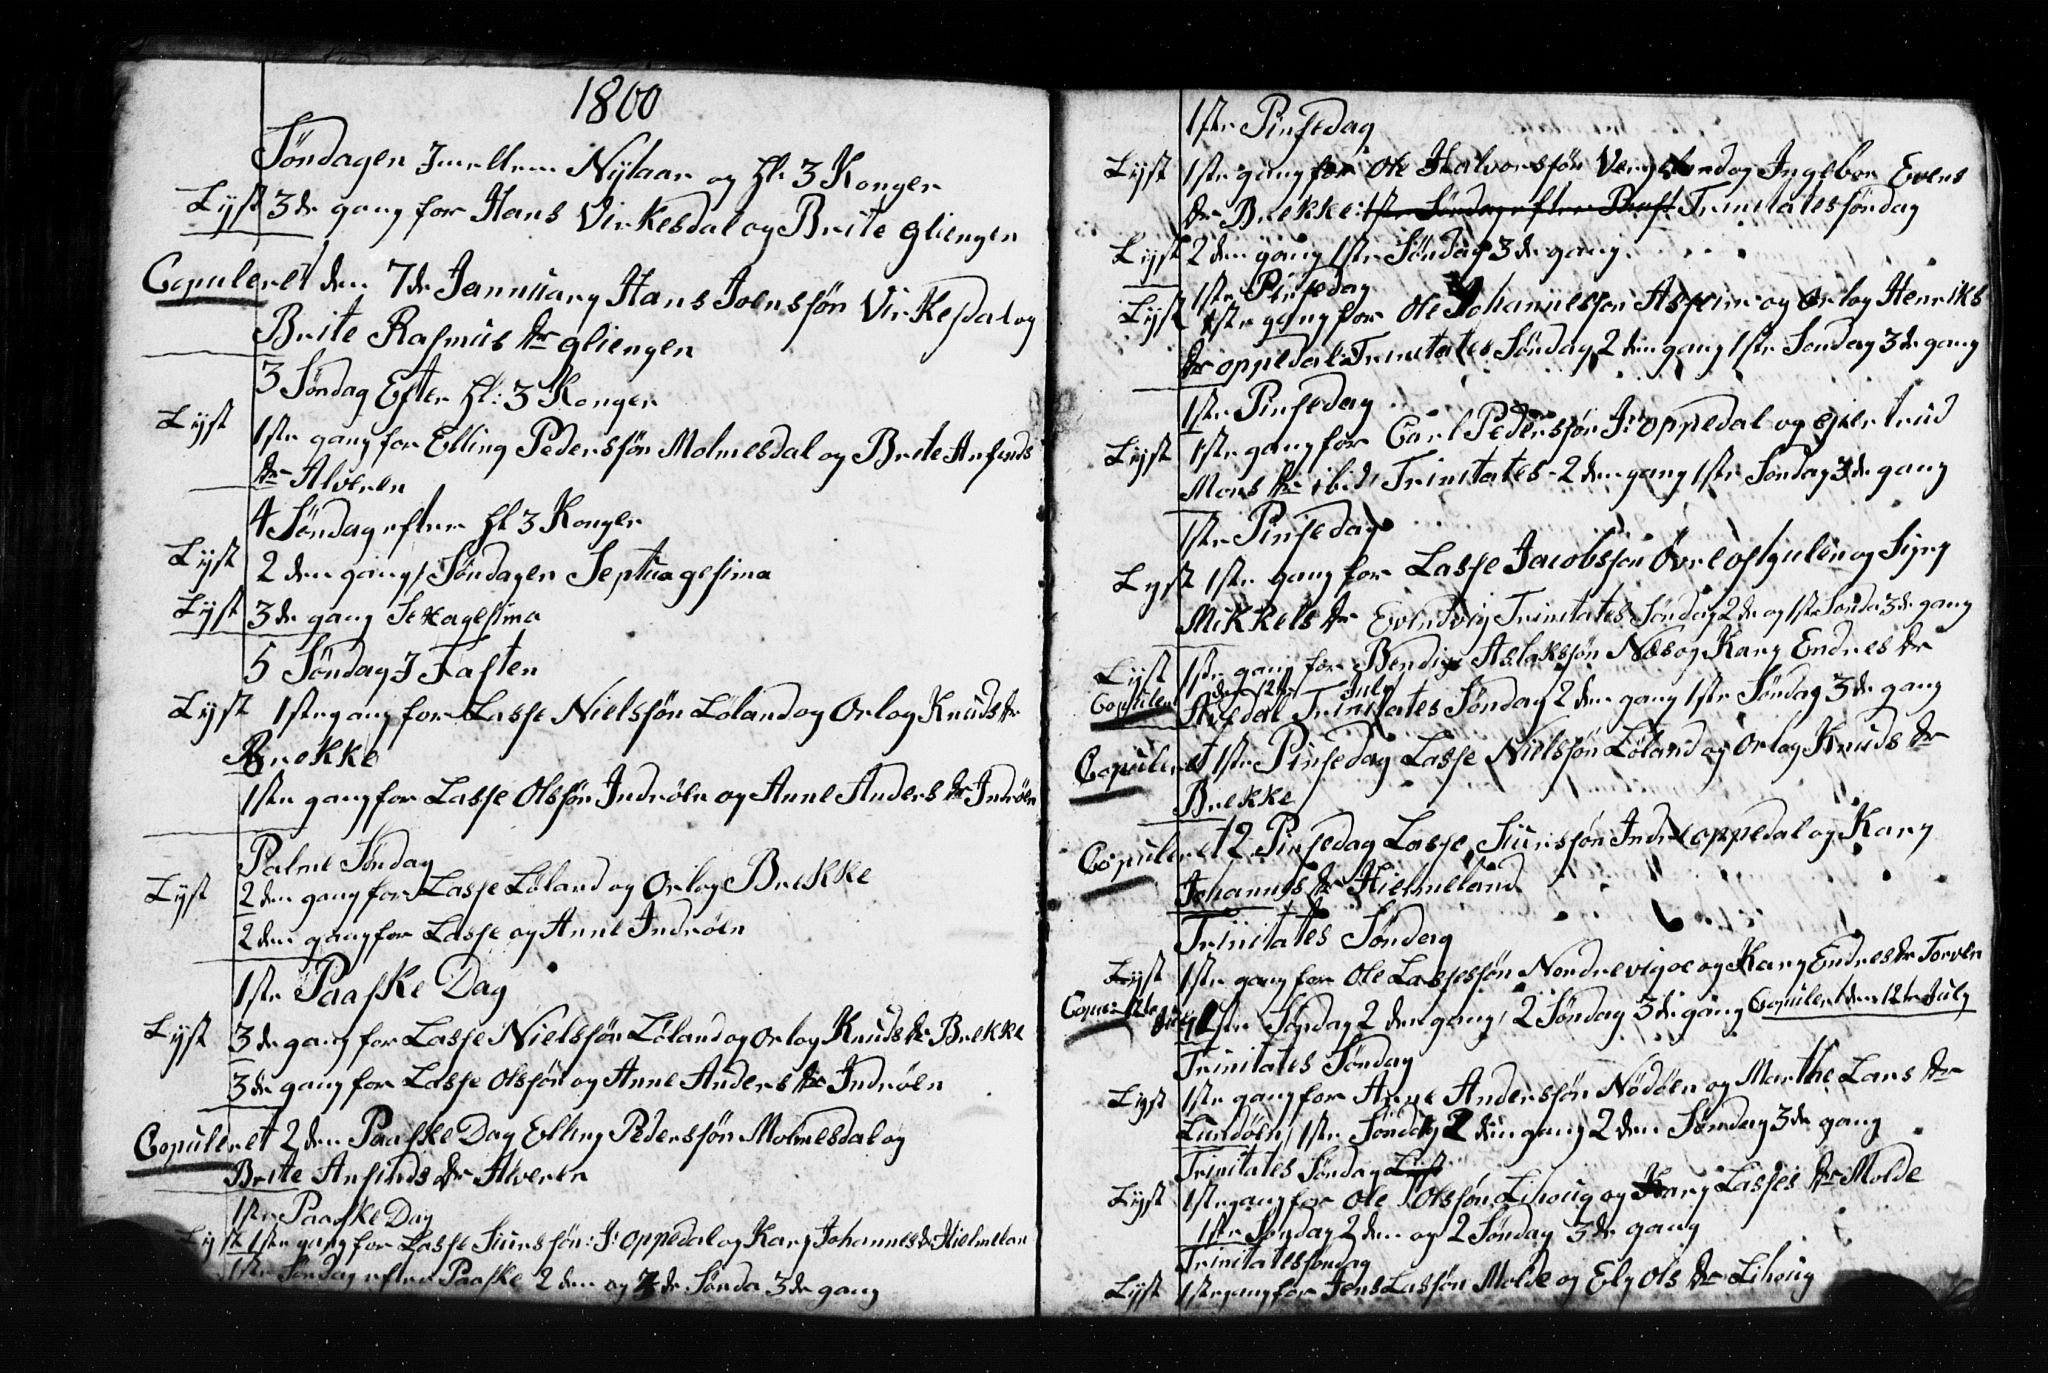 1800
Søndagen Imellem Nyt aar og Hl: 3 Konger
Lyst 3de gang for Hans Virkesdal og Brite gliengen
Copuleret den 7de Jannuary Hans Joensøn Virkesdal og
Brite Rasmus dr gliengen
3 Søndag Efter Hl: 3 Konger
Lyst 1ste gang for Elling Pederssøn Molmesdal og Brite Anfinds
dr Alveren
4 Søndag efter Hl 3 Konger
Lyst 2den gang, Søndagen Septuagesima
Lyst 3de gang Sexagesima
5 Søndag I Fasten
Lyst 1ste gang for Lasse Nielssøn Løland og Orlog Knuds dr
Brekke
1ste gang for Lasse Olssøn Indrøen og Anne Anders dr Indrøen
Palme Søndag
Lyst 2den gang for Lasse Løland og Orlog Brekke
2den gang for Lasse og Anne Indrøen
1ste Paaske Dag
Lyst 3de gang for Lasse Nielssøn Løland og Orlog Knuds dr Brekke
3de gang for Lasse Olssøn og Anne Anders dr Indrøen
Copuleret 2den Paaske Dag Elling Pederssøn Molmesdal og
Brite Anfinds dr Alveren
1ste Paaske Dag
Lyst 1ste gang for Lasse Siurssøn: I: oppedal og Kary Johannes dr Hielmelan
1ste Søndag efter Paaske 2den og Sønda 3de gang
1ste Pinsedag
Lyst 1ste gang for Ole Halvorssøn og Ingebor Evens
dr Brekke: 1ste Søndag efter Trinitatessøndag
Lyst 2den gang 1ste Søndag 3de gang.
1ste Pinsedag
Lyst 1ste gang for Ole Johannessøn Asheim og Orlog Henriks
dr oppedal: Trinitates Søndag 2den gang 1ste Søndag 3de gang
1ste Pinsedag
Lyst 1ste gang for Carl Pederssøn I: oppedal og giertrud
Mons dr ibid: Trinitates 2den gang 1ste Søndag 3de gang
1ste Pinsedag
Lyst 1ste gang for Lasse Jacobssøn Øvreosgulen og Signy
Mikkels dr Evindvig Trinitates Søndag 2de og 1ste Sønda 3de gang
Lyst 1ste gang for Bendix Aslakssøn Næs og Kary Endres dr
Copuleret den 12te July
Trinitates Søndag 2den gang 1ste Søndag 3de gang
Copuleret 1ste Pinsedag Lasse Nielssøn Løland og Orlog Knuds dr
Brekke
Copuleret 2 Pinsedag Lasse Siurssøn Indre oppedal og Kary
Johannes dr Hielmeland
Trinitates Søndag
Lyst 1ste gang for Ole Lassessøn Nordrevigoe og Kary Endres dr Torven
1ste Søndag 2den gang, 2 Søndag 3de gang Copuleret den 12te July
Trinitates Søndag
Lyst 1ste gang for Anne Anderssøn Nødøen og Marthe Lars dr
Lundøen, 1ste Søndag 2den gang 2den Søndag 3de gang
Trinitates Søndag Lyst
Lyst 1ste gang for Ole Olssøn Lihoug og Kary Lasses dr Molde
1ste Søndag 2den og 2 Søndag 3de gang
Trinitatessøndag
Lyst 1ste gang for Jens Lassøn Molde og Ely Ols dr Lihoug